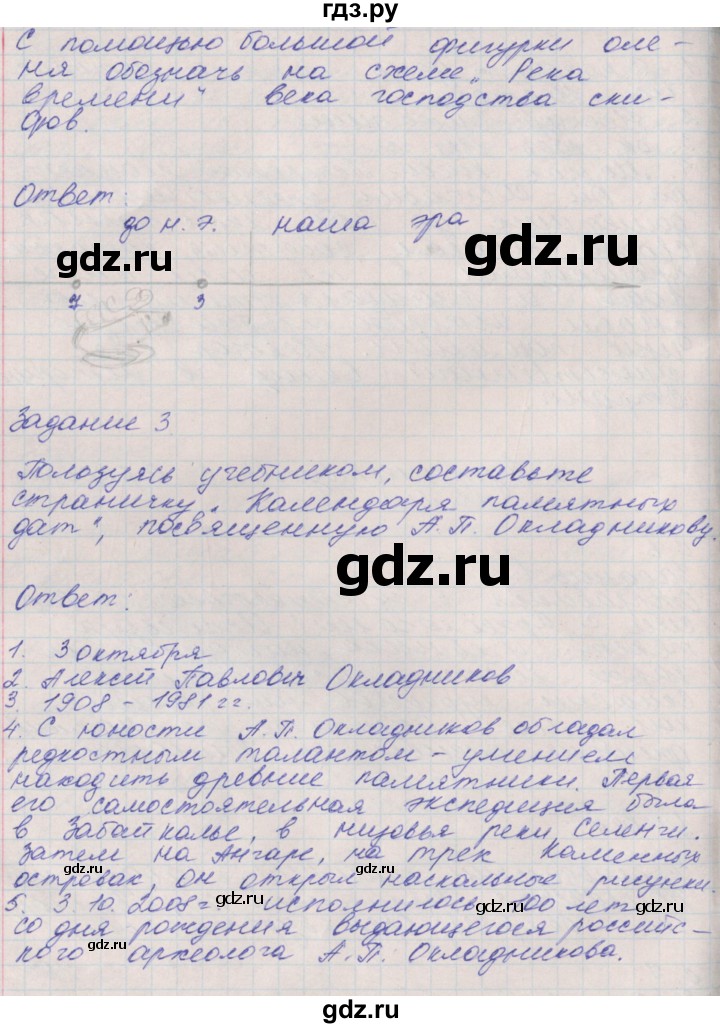 гдз.ру
С помощью большой фигурки оле-
ня обозначь на схеме „Река
времени" века господства ски-
фов.
Ответ:
до н. э. наша эра
gdz.ru gdz.ru
7 3
Задание 3
Ползуясь учебником, составьте
страничку „Календаря памятных
дат", посвященную А. П. Окладникову.
gdz.ru
Ответ:
1. 3 октября
2. Алексей Павлович Окладников
3. 1908 - 1981 гг.
4. С юности А. П. Окладников обладал
редкостным талантом - умением
находить древние памятники. Первая
его самостоятельная экспедиция была
в Забайкалье, в низовья реки Селенги.
Затем на Ангаре, на трех Каменных
островах, он открыл наскальные рисунки.
5. 3. 10. 2008 г исполнилось 100 лет
gdz.ru gdz.ru
со дня рождения выдающегося российс-
кого археолога А. П. Окладникова.
gdz.ru